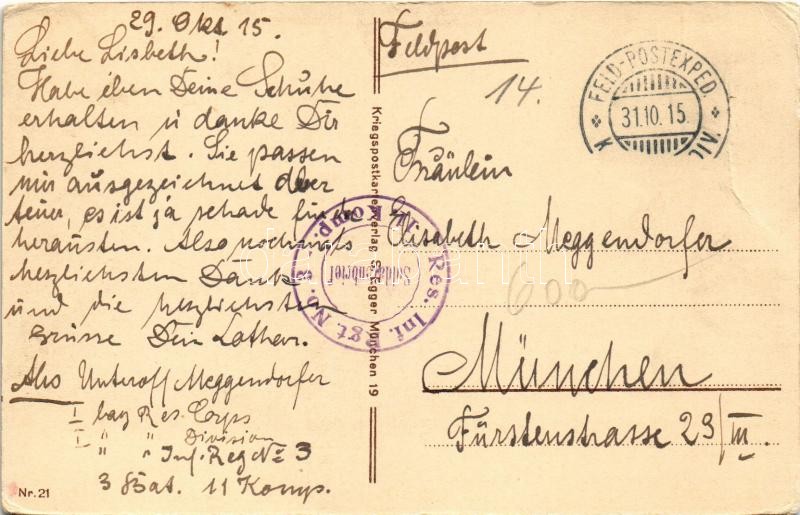 29. Okt. 15.
Liebe Lisbeth!
Habe eben Deine Schuhe
erhalten u danke Dir
herzlichst. Sie passen
mir ausgezeichnet aber
teuer, es ist ja schade für
heraußen. Also nochmals
herzlichsten Dank
und die herzlichsten
Grüsse Dein Lothar.
Also Unteroff Meggendorfer
I bay Res. Corps
I " " Division
" " Inf. Reg No 3
3 Bat. 11 Komp.
Nr. 21
Kriegspostkartenverlag S. Egger München 19
Res. Inf. Rgt. No. 3
11. Komp.
Soldatenbrief
Feldpost
14.
FELD-POSTEXPED.
31.10. 15.
Fräulein
Elisabeth Meggendorfer
600
München
Fürstenstrasse 23/III.